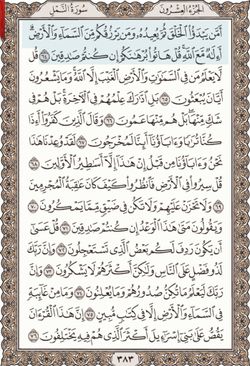 الجزء العشرون سورة النمل
أمن يبدؤا الخلق ثم يعيده ومن يرزقكم من السماء والأرض
أءله مع الله قل هاتوا برهانكم إن كنتم صادقين ٦٤ قل
لا يعلم من في السماوات والأرض الغيب إلا الله وما يشعرون
أيان يبعثون ٦٥ بل ادارك علمهم في الآخرة بل هم في
شك منها بل هم منها عمون ٦٦ وقال الذين كفروا أءذا
كنا ترابا وءاباؤنا أئنا لمخرجون ٦٧ لقد وعدنا هذا
نحن وءاباؤنا من قبل إن هذا إلا أساطير الأولين ٦٨
قل سيروا في الأرض فانظروا كيف كان عاقبة المجرمين
٦٩ ولا تحزن عليهم ولا تكن في ضيق مما يمكرون ٧٠
ويقولون متى هذا الوعد إن كنتم صادقين ٧١ قل عسى
أن يكون ردف لكم بعض الذي تستعجلون ٧٢ وإن ربك
لذو فضل على الناس ولكن أكثرهم لا يشكرون ٧٣ وإن
ربك ليعلم ما تكن صدورهم وما يعلنون ٧٤ وما من غائبة
في السماء والأرض إلا في كتاب مبين ٧٥ إن هذا القرءان
يقص على بني إسراءيل أكثر الذي هم فيه يختلفون ٧٦
٣٨٣